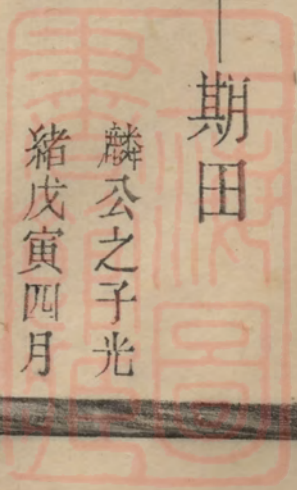 期田
麟公之子光
豬戊寅四月